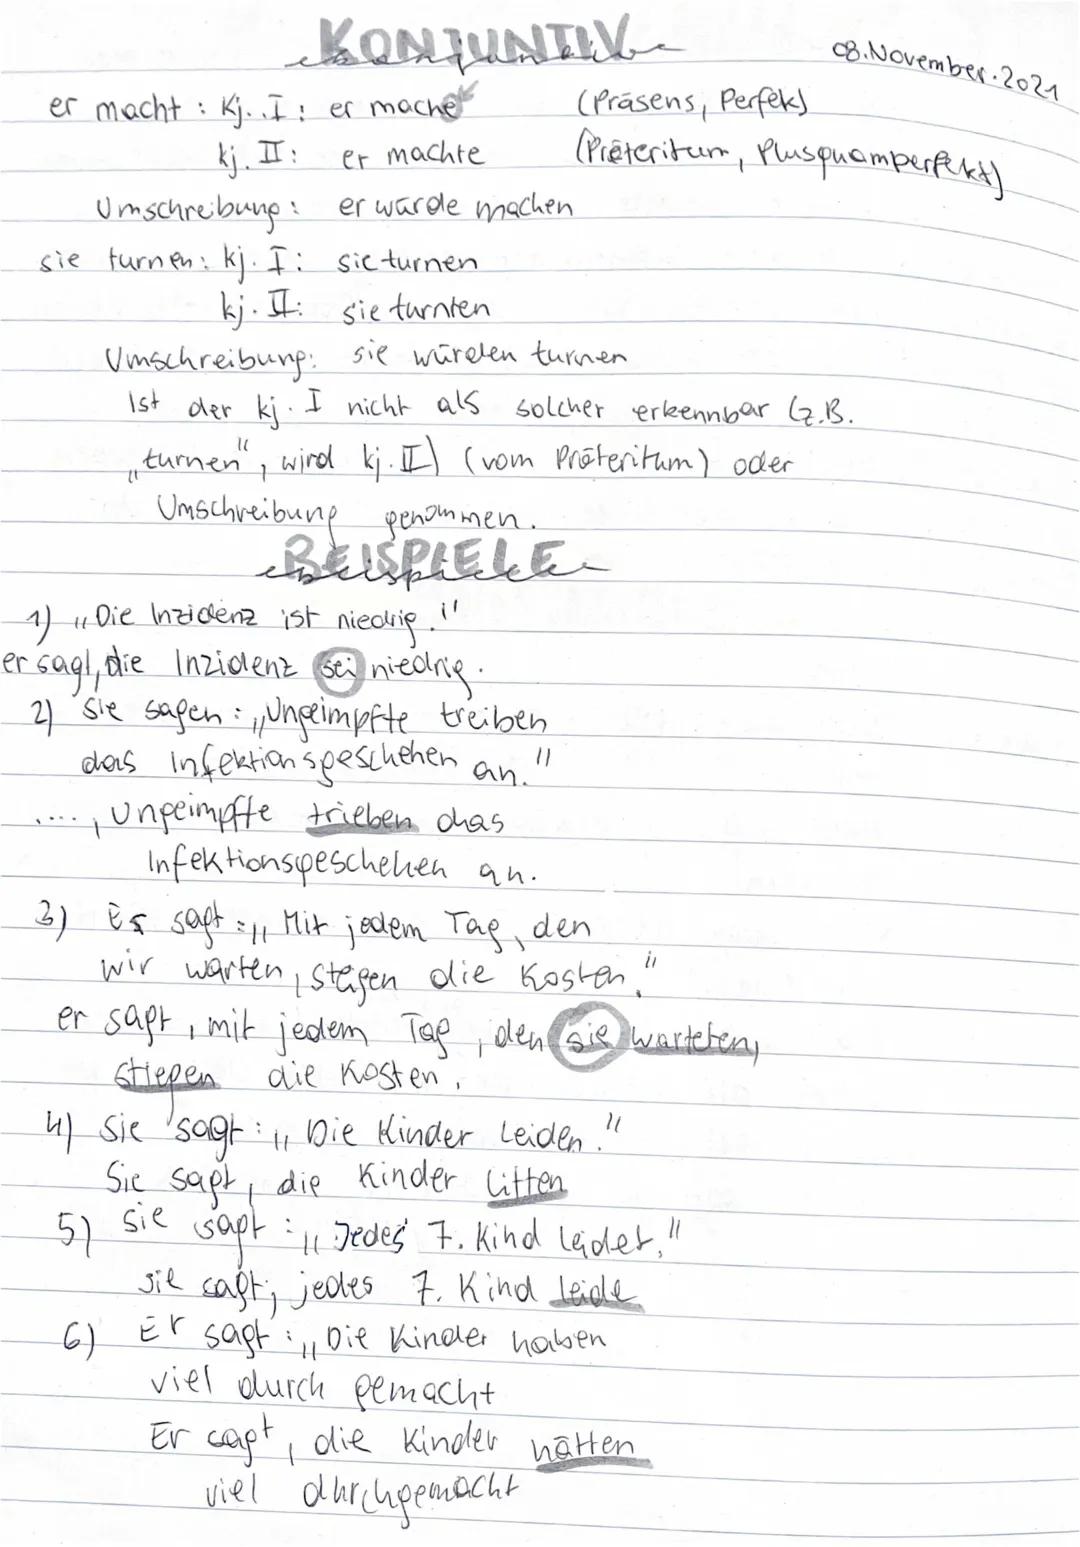 KONJUNTIV
08.November.2021
er macht : Kj. I : er mache (Präsens, Perfek)
kj. II : er machte (Präteritum, Plusquamperfekt)
Umschreibung : er würde machen
sie turnen : kj. I : sie turnen
kj. II : sie turnten
Umschreibung : sie würden turnen
Ist der kj. I nicht als solcher erkennbar (z.B.
„turnen", wird kj. II) (vom Präteritum) oder
Umschreibung genommen.
BEISPIELE
1) „Die Inzidenz ist niedrig."
er sagt, die Inzidenz sei niedrig.
2) Sie sagen : „Ungeimpfte treiben
das Infektionsgeschehen an."
...., Ungeimpfte trieben das
Infektionsgeschehen an.
3) Er sagt : „Mit jedem Tag, den
wir warten, steigen die Kosten."
er sagt, mit jedem Tag, den sie warteten,
stiegen die Kosten.
4) Sie sagt : „Die Kinder leiden."
Sie sagt, die Kinder litten
5) Sie sagt : „Jedes 7. Kind leidet."
sie sagt, jedes 7. Kind leide
6) Er sagt : „Die Kinder haben
viel durch gemacht
Er sagt, die Kinder hätten
viel durchgemacht